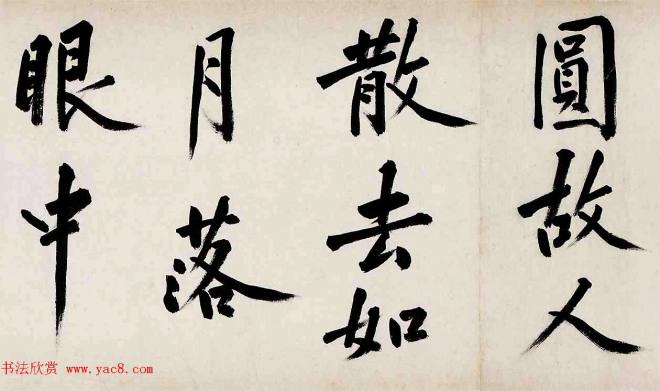 圓故人
散去如
月落
眼中
书法欣赏 www.yac8.com